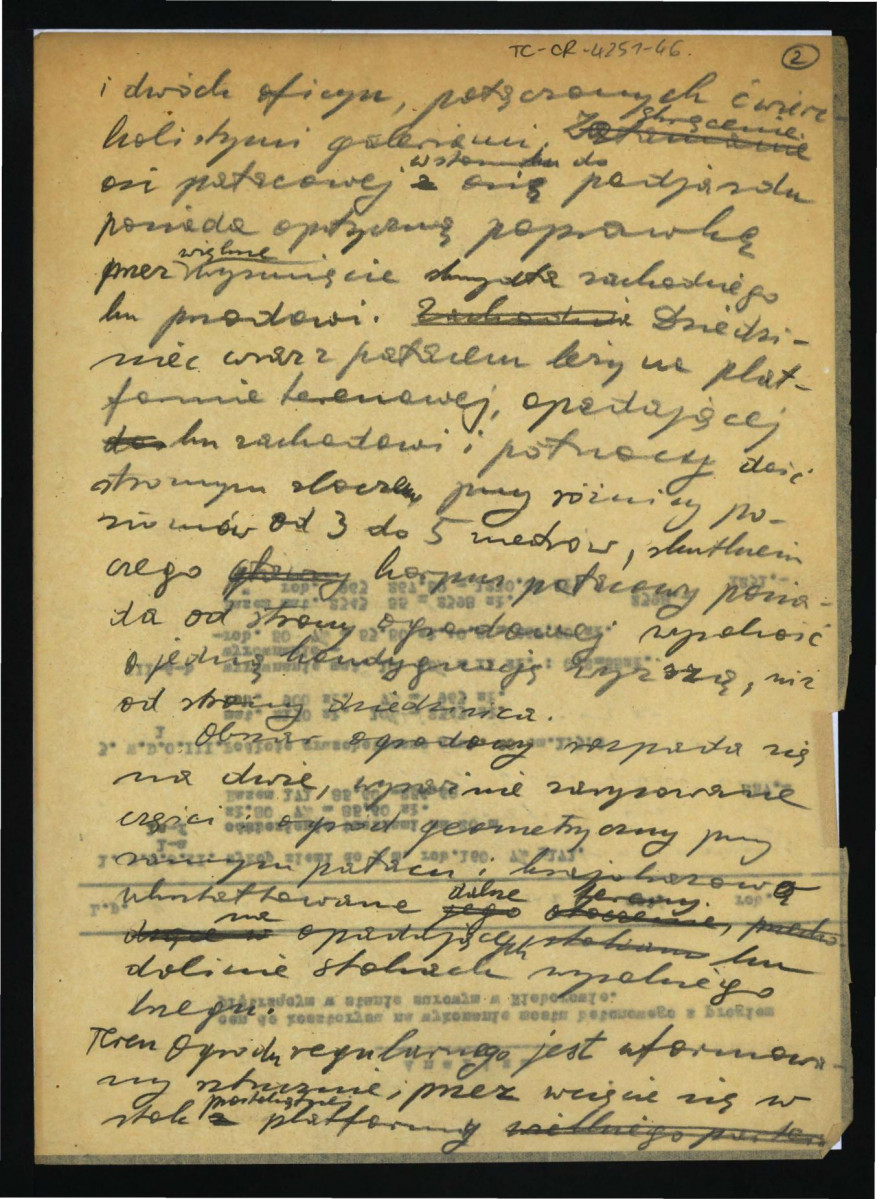 TC-CR-4251-46. 2
i dwóch oficyn, połączonych ćwierć-
kolistymi galeriami. Załamanie skręcenie
osi pałacowej z w stosunku do osią podjazdu
posiada optyczną poprawkę
przez większe wysunięcie skrzydła zachodniego
ku przodowi. Zachodnia Dziedzi-
niec wraz z pałacem leży na plat-
formie terenowej, opadającej
do ku zachodowi i północy dość
stromym stokiem, przy różnicy po-
ziomów od 3 do 5 metrów, skutkiem
czego główny korpus pałacowy posia-
da od strony ogrodowej wysokość
o jedną kondygnację wyższą, niż
od strony dziedzińca.
Obszar ogrodowy rozpada się
na dwie, wyraźnie zarysowane
części: ogród geometryczny przy
samym pałacu i krajobrazowo
ukształtowane dalsze jego tereny otoczenie,
na opadających stokach ku
dolinie stokach wysokiego
brzegu.
Teren Ogrodu regularnego jest uformowa-
ny sztucznie, przez wcięcie się w
stok z prostokątnej platformy wielkiego